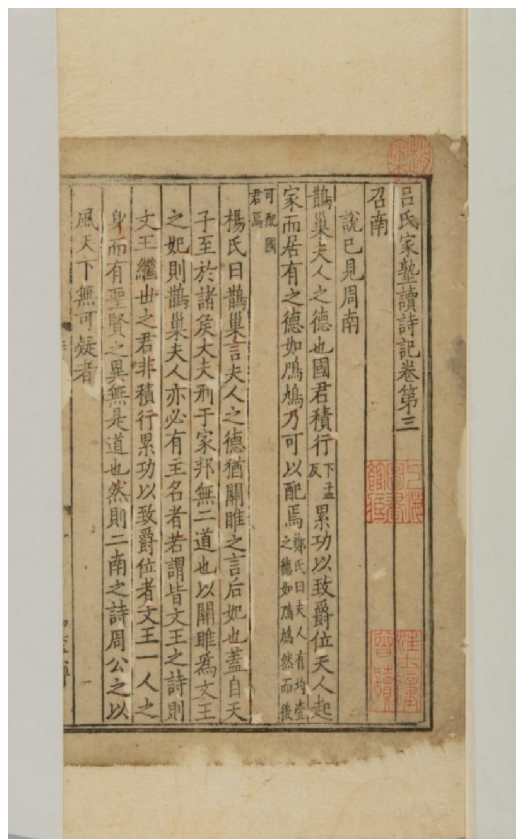 呂氏家塾讀詩記卷第三
召南
說已見周南
鵲巢夫人之德也國君積行下孟反累功以致爵位夫人起
家而居有之德如鳲鳩乃可以配焉鄭氏曰夫人有均壹之德如鳲鳩然而後
可配國君焉
楊氏曰鵲巢言夫人之德猶關雎之言后妃也蓋自天
子至於諸侯大夫刑于家邦無二道也以關雎爲文王
之妃則鵲巢夫人亦必有主名者若謂皆文王之詩則
文王繼世之君非積行累功以致爵位者文王一人之
身而有聖賢之異無是道也然則二南之詩周公之以
風天下無可疑者
上海圖書館藏
汪士鐘曾讀